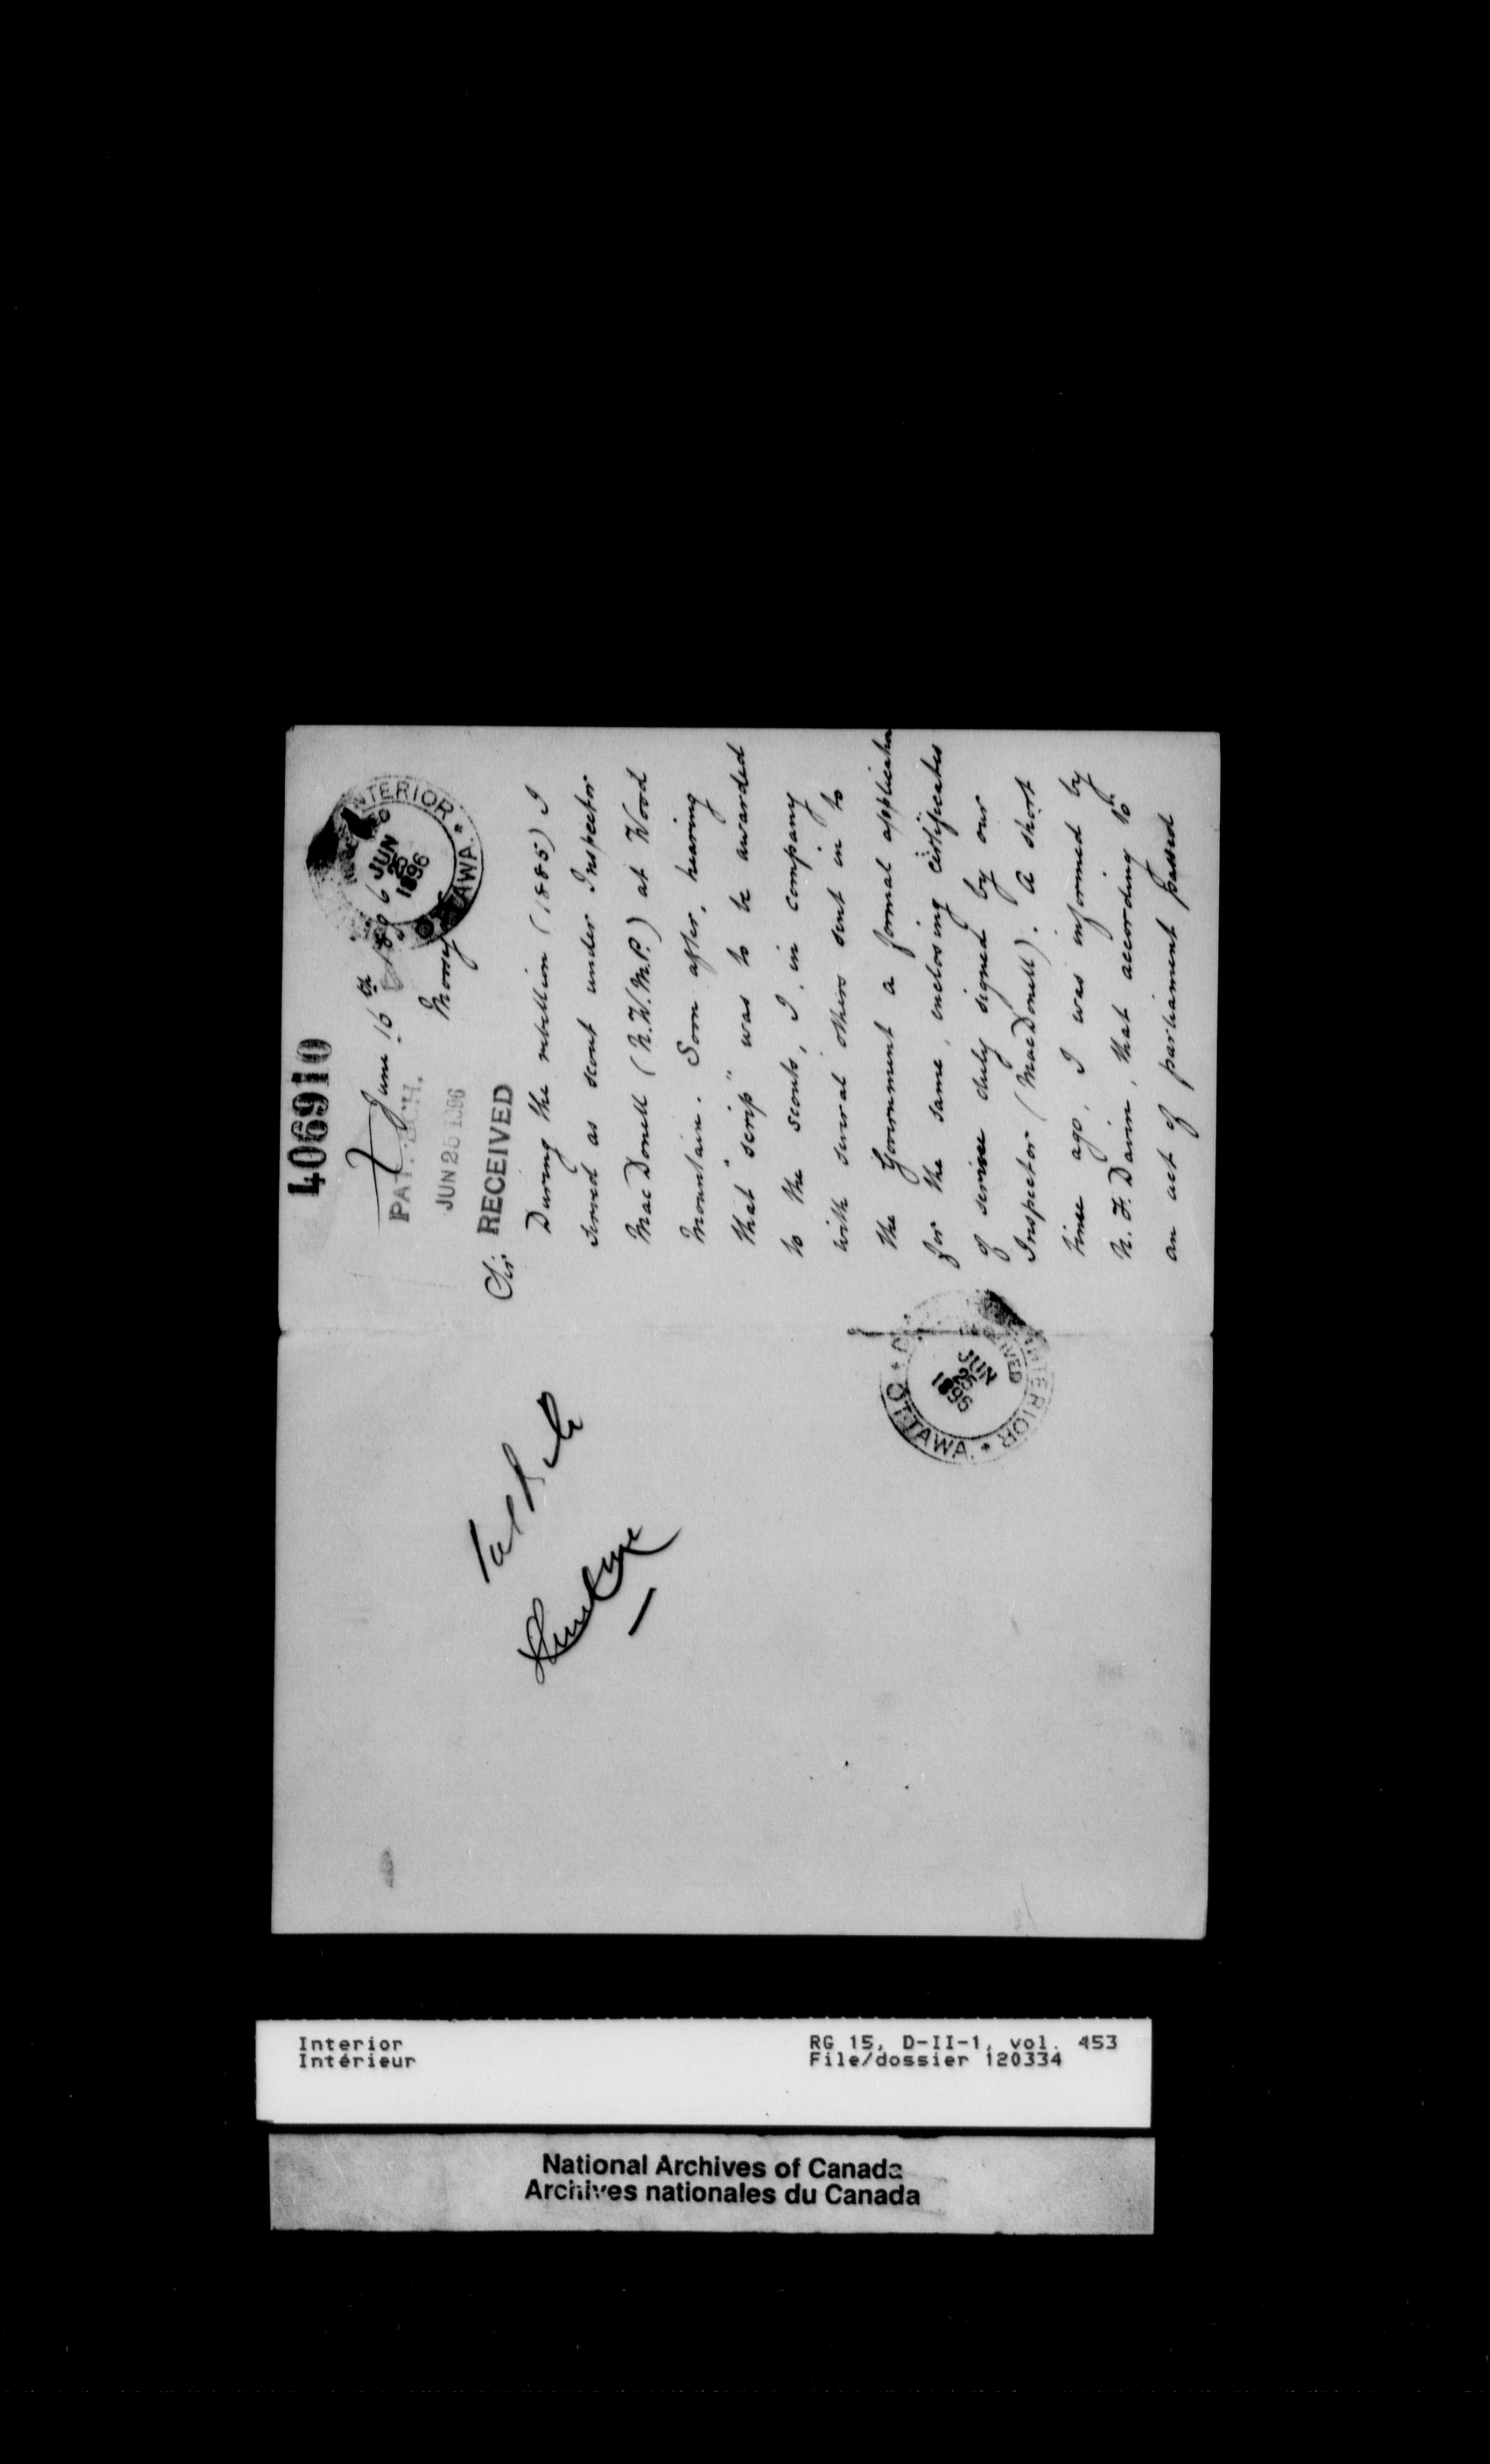 406910
June 16th 1896
PAT. BCH.
JUN 26 1896
RECEIVED
INTERIOR
JUN
25
1896
OTTAWA.
Sir;
During the rebellion (1885) I
served as scout under Inspector
MacDonell (N.W.M.P.) at Wood
Mountain. Soon after, hearing
that "scrip" was to be awarded
to the scouts, I, in company
with several others sent in to
the Government a formal application
for the same, inclosing certificates
of service duly signed by our
Inspector (MacDonell). A short
time ago, I was informed by
N. F. Davin, that according to
an act of parliament passed
INTERIOR
JUN
25
1896
OTTAWA.
Interior
Intérieur
RG 15, D-II-1, vol. 453
File/dossier 120334
National Archives of Canada
Archives nationales du Canada